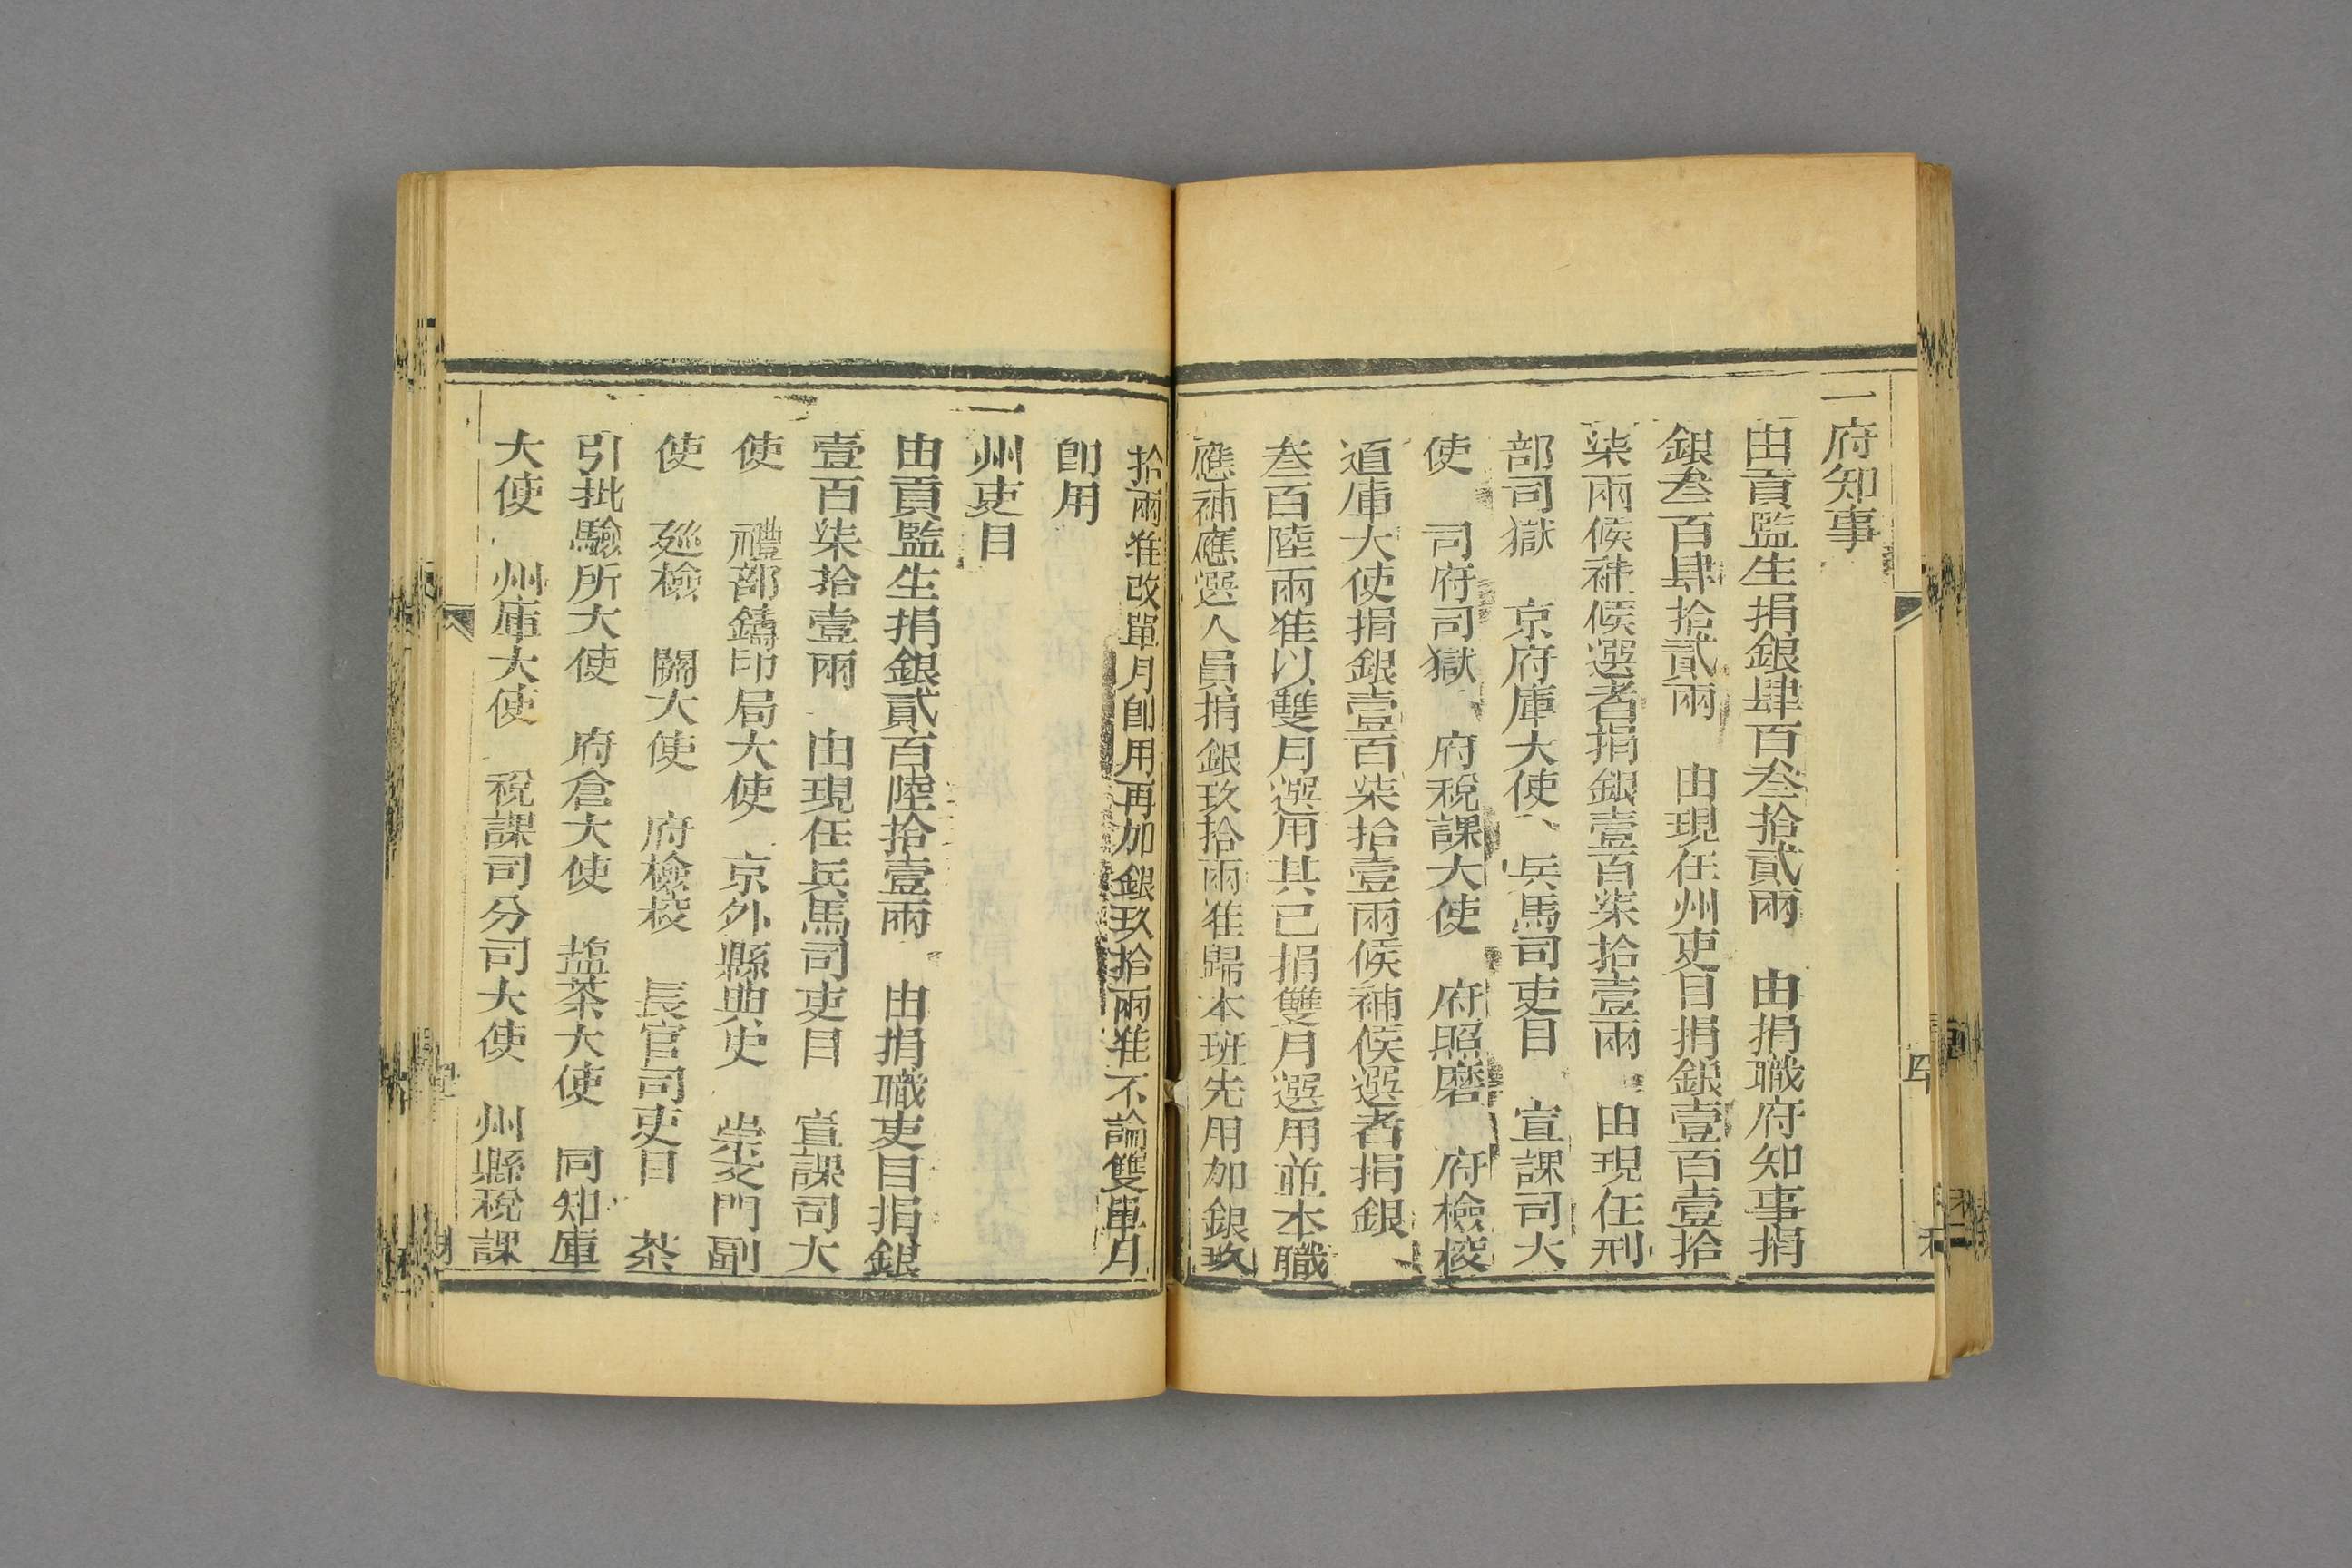 一府知事
由貢監生捐銀肆百叁拾貳兩　由捐職府知事捐
銀叁百肆拾貳兩　由現任州吏目捐銀壹百壹拾
柒兩候補候選者捐銀壹百柒拾壹兩　由現任刑
部司獄　京府庫大使　兵馬司吏目　宣課司大
使　司府司獄　府稅課大使　府照磨　府檢校
道庫大使捐銀壹百柒拾壹兩候補候選者捐銀
叁百陸兩准以雙月選用其已捐雙月選用並本職
應補應選人員捐銀玖拾兩准歸本班先用加銀玖
拾兩准改單月卽用再加銀玖拾兩准不論雙單月
卽用
一州吏目
由貢監生捐銀貳百陸拾壹兩　由捐職吏目捐銀
壹百柒拾壹兩　由現任兵馬司吏目　宣課司大
使　禮部鑄印局大使　京外縣典史　崇文門副
使　廵檢　關大使　府檢校　長官司吏目　茶
引批驗所大使　府倉大使　塩茶大使　同知庫
大使　州庫大使　稅課司分司大使　州縣稅課